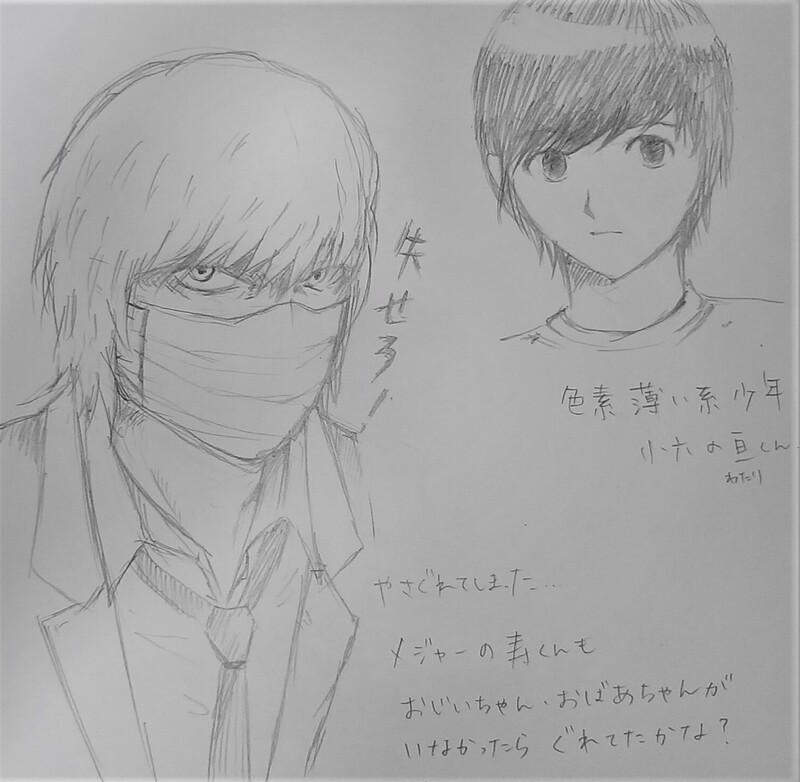 失せろ!
色素薄い系少年
小六の亘くん
わたり
やさぐれてしまった…
メジャーの寿くんも
おじいちゃん、おばあちゃんが
いなかったら ぐれてたかな?